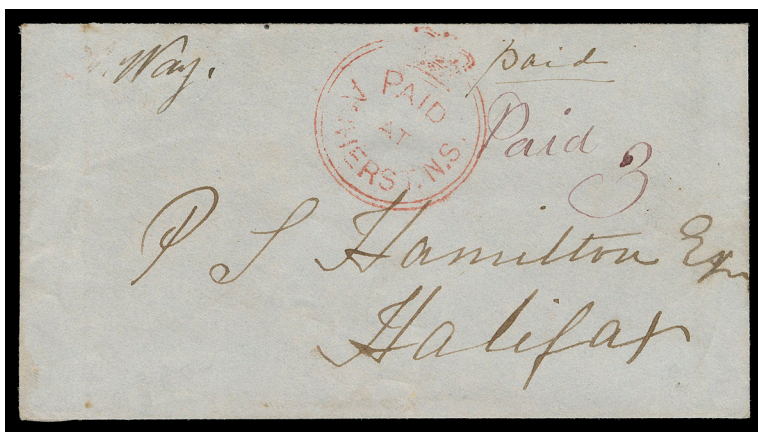 Way.
paid
PAID
AT
AMHERST.N.S.
Paid 3
P S Hamilton Esqr
Halifax